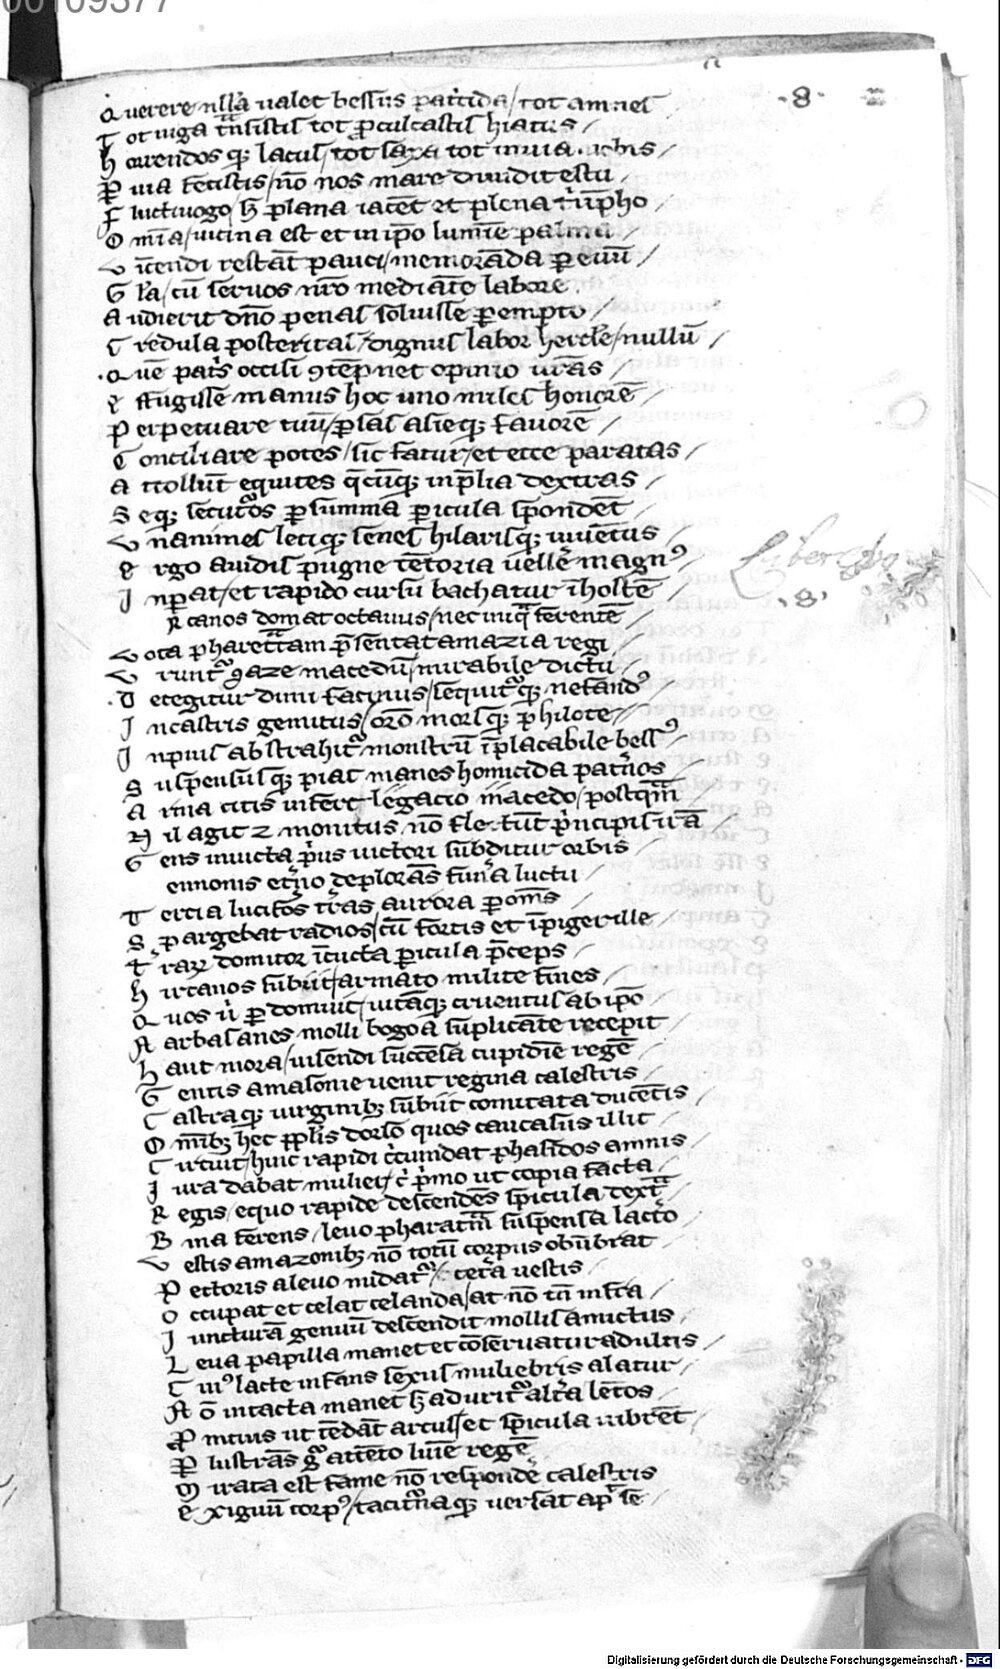 00109377
·8·
Querere nulla ualet bessus patricida / tot amnes
Tot iuga transistis tot proculcastis hiatus /
Horrendos que lacus / tot saxa tot inuia /
Peruia fecistis / non nos mare diuidit estu /
Fluctiuago / sed plana iacent et plena triumpho
Omnia / uicina est et in ipso lumine palma
Vincendi restant pauci / memoranda per euum /
Gloria / cum seruos nostro mediante labore
Audierit domino penas soluisse perempto /
Credula posteritas / dignus labor hercule / nullum /
·Quem patris occisi contempnet opinio uestras /
Effugisse manus hoc uno miles honorem /
Perpetuare tuum / persas asieque fauorem /
Conciliare potes / sic fatur / et ecce paratas /
Attollunt equites quecumque in prelia dextras /
Seque secuturos per summa pericula spondent
Vnanimes letique senes hilarisque iuuentus /
Ergo auidis pugne tentoria uellere magnus
Inperat / et rapido cursu bachatur in hostem /
Liber octavus
·8·
Rcanos domat octauus / nec
Vota pharetratam presentat amazia regi
Vruntur gaze macedum / mirabile dictu /
·Detegitur dimi facinus / sequiturque nefandus
In castris gemitus / oratio morsque philote //
Inpius abstrahitur monstrum inplacabile bessus /
Suspensusque piat manes homicida paternos
Arma citis infert legacio macedo / postquam
Nil agit et monitus non flectunt principis iram /
Gens inuicta prius uictori subditur orbis
emnonis eterno deplorans funera luctu
Tercia luciferos terras aurora per omnes
Spargebat radios / cum fortis et inpiger ille
Terrarum domitor intucta pericula preceps /
Hircanos subiit / armato milite fines
Quos ubi perdomuit / uitamque cruentus ab ipso
Narbasanes molli bogoa suplicante recepit
Haut mora / uisendi succensa cupidine regem
Gentis amasonie uenit regina calestris
Castraque uirginibus subiit comitata ducentis
Omnibus hec populis dorso quos caucasus illic /
Circuit / huic rapidi circumdat phasidos amnis
Iura dabat mulier / cui primo ut copia facta /
Regis / equo rapide descendens spicula dextra
Bina ferens / leuo pharatram suspensa lacerto
Vestis amazonibus non totum corpus obumbrat
Pectoris a leuo nudatur / cetera uestis
Occupat et celat celanda / at non tamen infra
Iuncturam genuum descendit mollis amictus
Leua papilla manet et conseruatur adultis
Cuius lacte infans sexus muliebris alatur
Non intacta manet sed aduritur altera lentos
Promcius ut tendant arcus / et spicula uibrent
Perlustrans gressu attento lumine regem
Mirata est fame non respondere calestris
Exiguum corpus / tacitumque uersat apud se
Digitalisierung gefördert durch die Deutsche Forschungsgemeinschaft - DFG